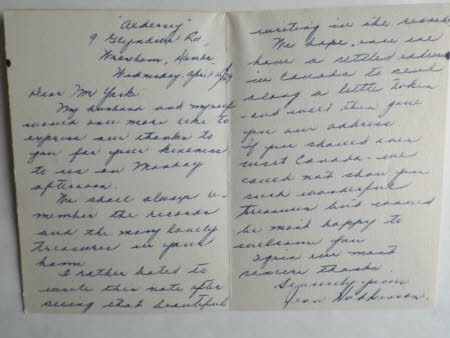 "Aldersey"
9 Glyndwr Rd,
Wrexham,
Wednesday, April
Dear Mr York:
My husband and myself
would once more like to
express our thanks to
you for your kindness
to us on Monday
afternoon.
We shall always re-
member the records
and the many lovely
treasures in your
home.
I rather hated to
write this note after
seeing that beautiful
writing in the
We hope, once we
have a settled address
in Canada to send
along a little token
- and will then give
you our address
if you should ever
visit Canada - we
could not show you
such wonderful
treasures but would
be most happy to
welcome you
Again our most
sincere thanks.
Sincerely yours
Jean